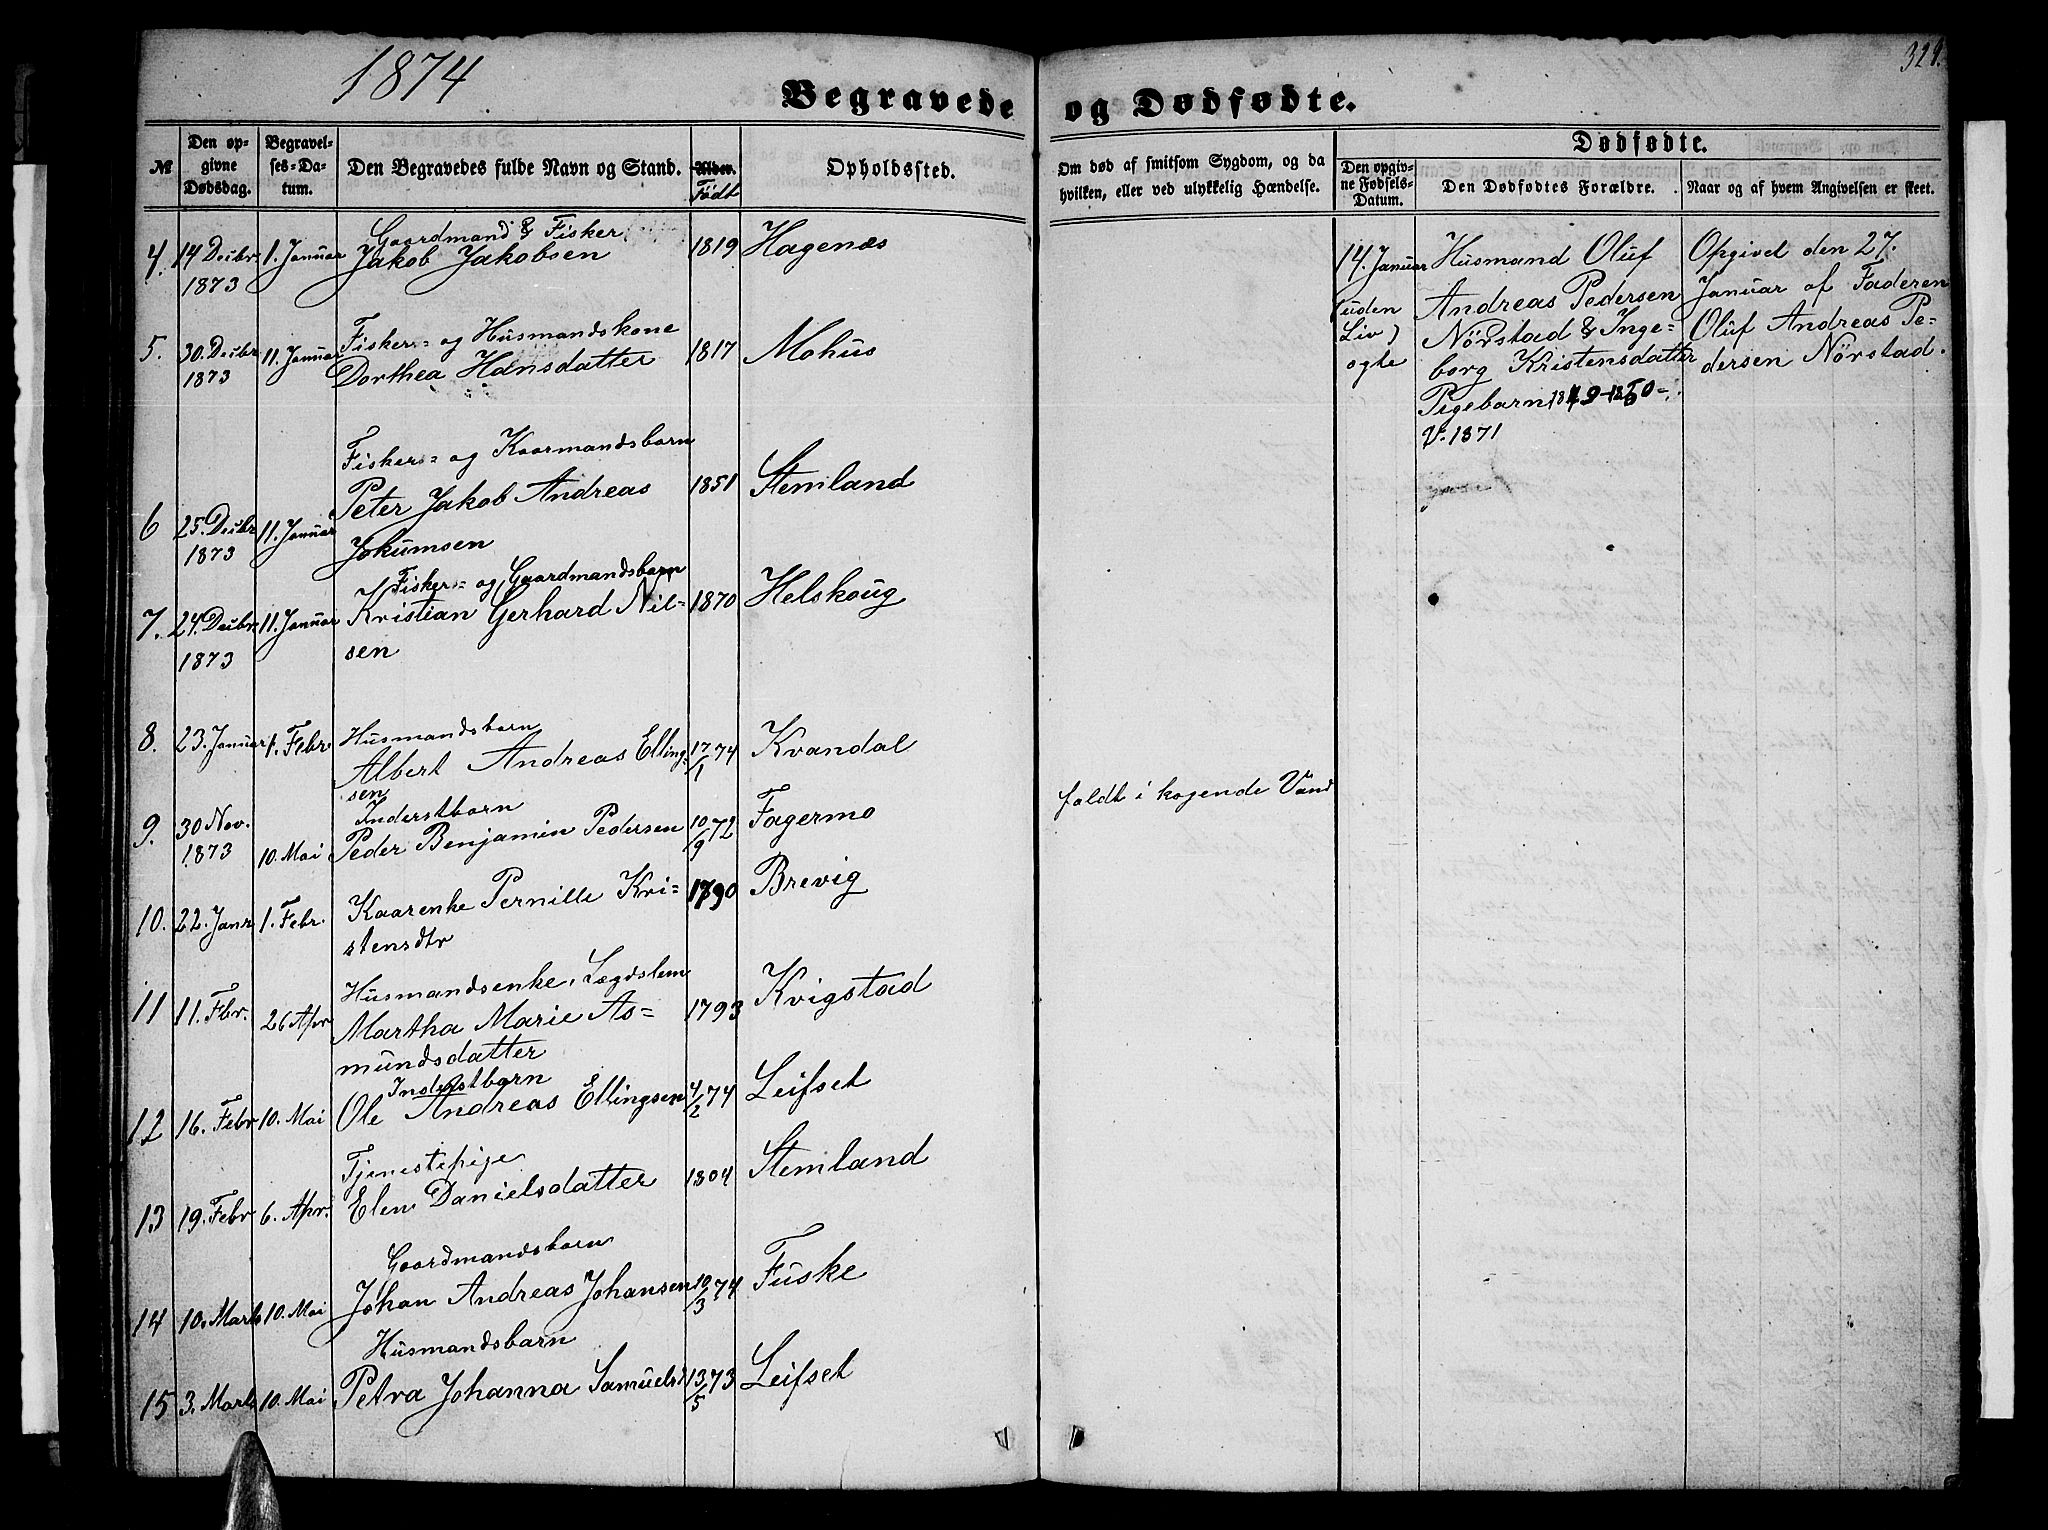 1874
324.
Begravede og Dødfødte.
№
Den opgivne Dødsdag.
Begravelses-Datum.
Den Begravedes fulde Navn og Stand.
Alder. Födt
Opholdssted.
Om død af smitsom Sygdom, og da hvilken, eller ved ulykkelig Hændelse.
Dødfødte.
Den opgivne Fødsels-Datum.
Den Dødfødtes Forældre.
Naar og af hvem Angivelsen er skeet.
Gaardmand & Fisker
4. 14 Decbr. 1. Januar Jakob Jakobsen 1819 Hagenæs
1873
Fisker= og Husmandskone
5. 30. Decbr 11. Januar Dorthea Hansdatter 1817 Mohus
1873
Fisker= og Kaarmandsbarn
Peter Jakob Andreas 1851 Stemland
6 25. Decbr 11. Januar Jokumsen
1873
Fisker= og Gaardmandsbarn
7. 24. Decbr. 11. Januar Kristian Gerhard Nil= 1870 Helskoug
1873 sen
Husmandsbarn
8. 23. Januar 1. Febr. Albert Andreas Elling 17/1 74 Kvandal
sen
Inderstbarn
9. 30 Nov. 10. Mai Peder Benjamin Pedersen 10/9 72 Fagermo faldt i kogende Vand
1873
10. 22. Janr 1. Febr. Kaarenke Pernille Kri= 1790 Brevig
stensdtr
Husmandsenke, Lægdslem
11 11. Fbr. 26 Apr Martha Marie As= 1793 Kvigstad
mundsdatter
Inderstbarn
12 16. Febr 10. Mai Ole Andreas Ellingsen 4/2 74 Leifset
Tjenestepige
13 19. Febr 6. Apr. Elen Danielsdatter 1804 Stemland
Gaardmandsbarn
14 10. Marts 10. Mai Johan Andreas Johansen 10/3 74 Fuske
Husmandsbarn
15 3. Marts 10. Mai Petra Johanna Samuelsd 13/5 73 Leifset
14. Januar
(uden
Liv)
ogte
Husmand Oluf
Andreas Pedersen
Nörstad & Inge=
borg Kristensdatter
Pigebarn 1849-1850=
V. 1871
Opgivet den 27.
Januar af Faderen
Oluf Andreas Pe=
dersen Nörstad.